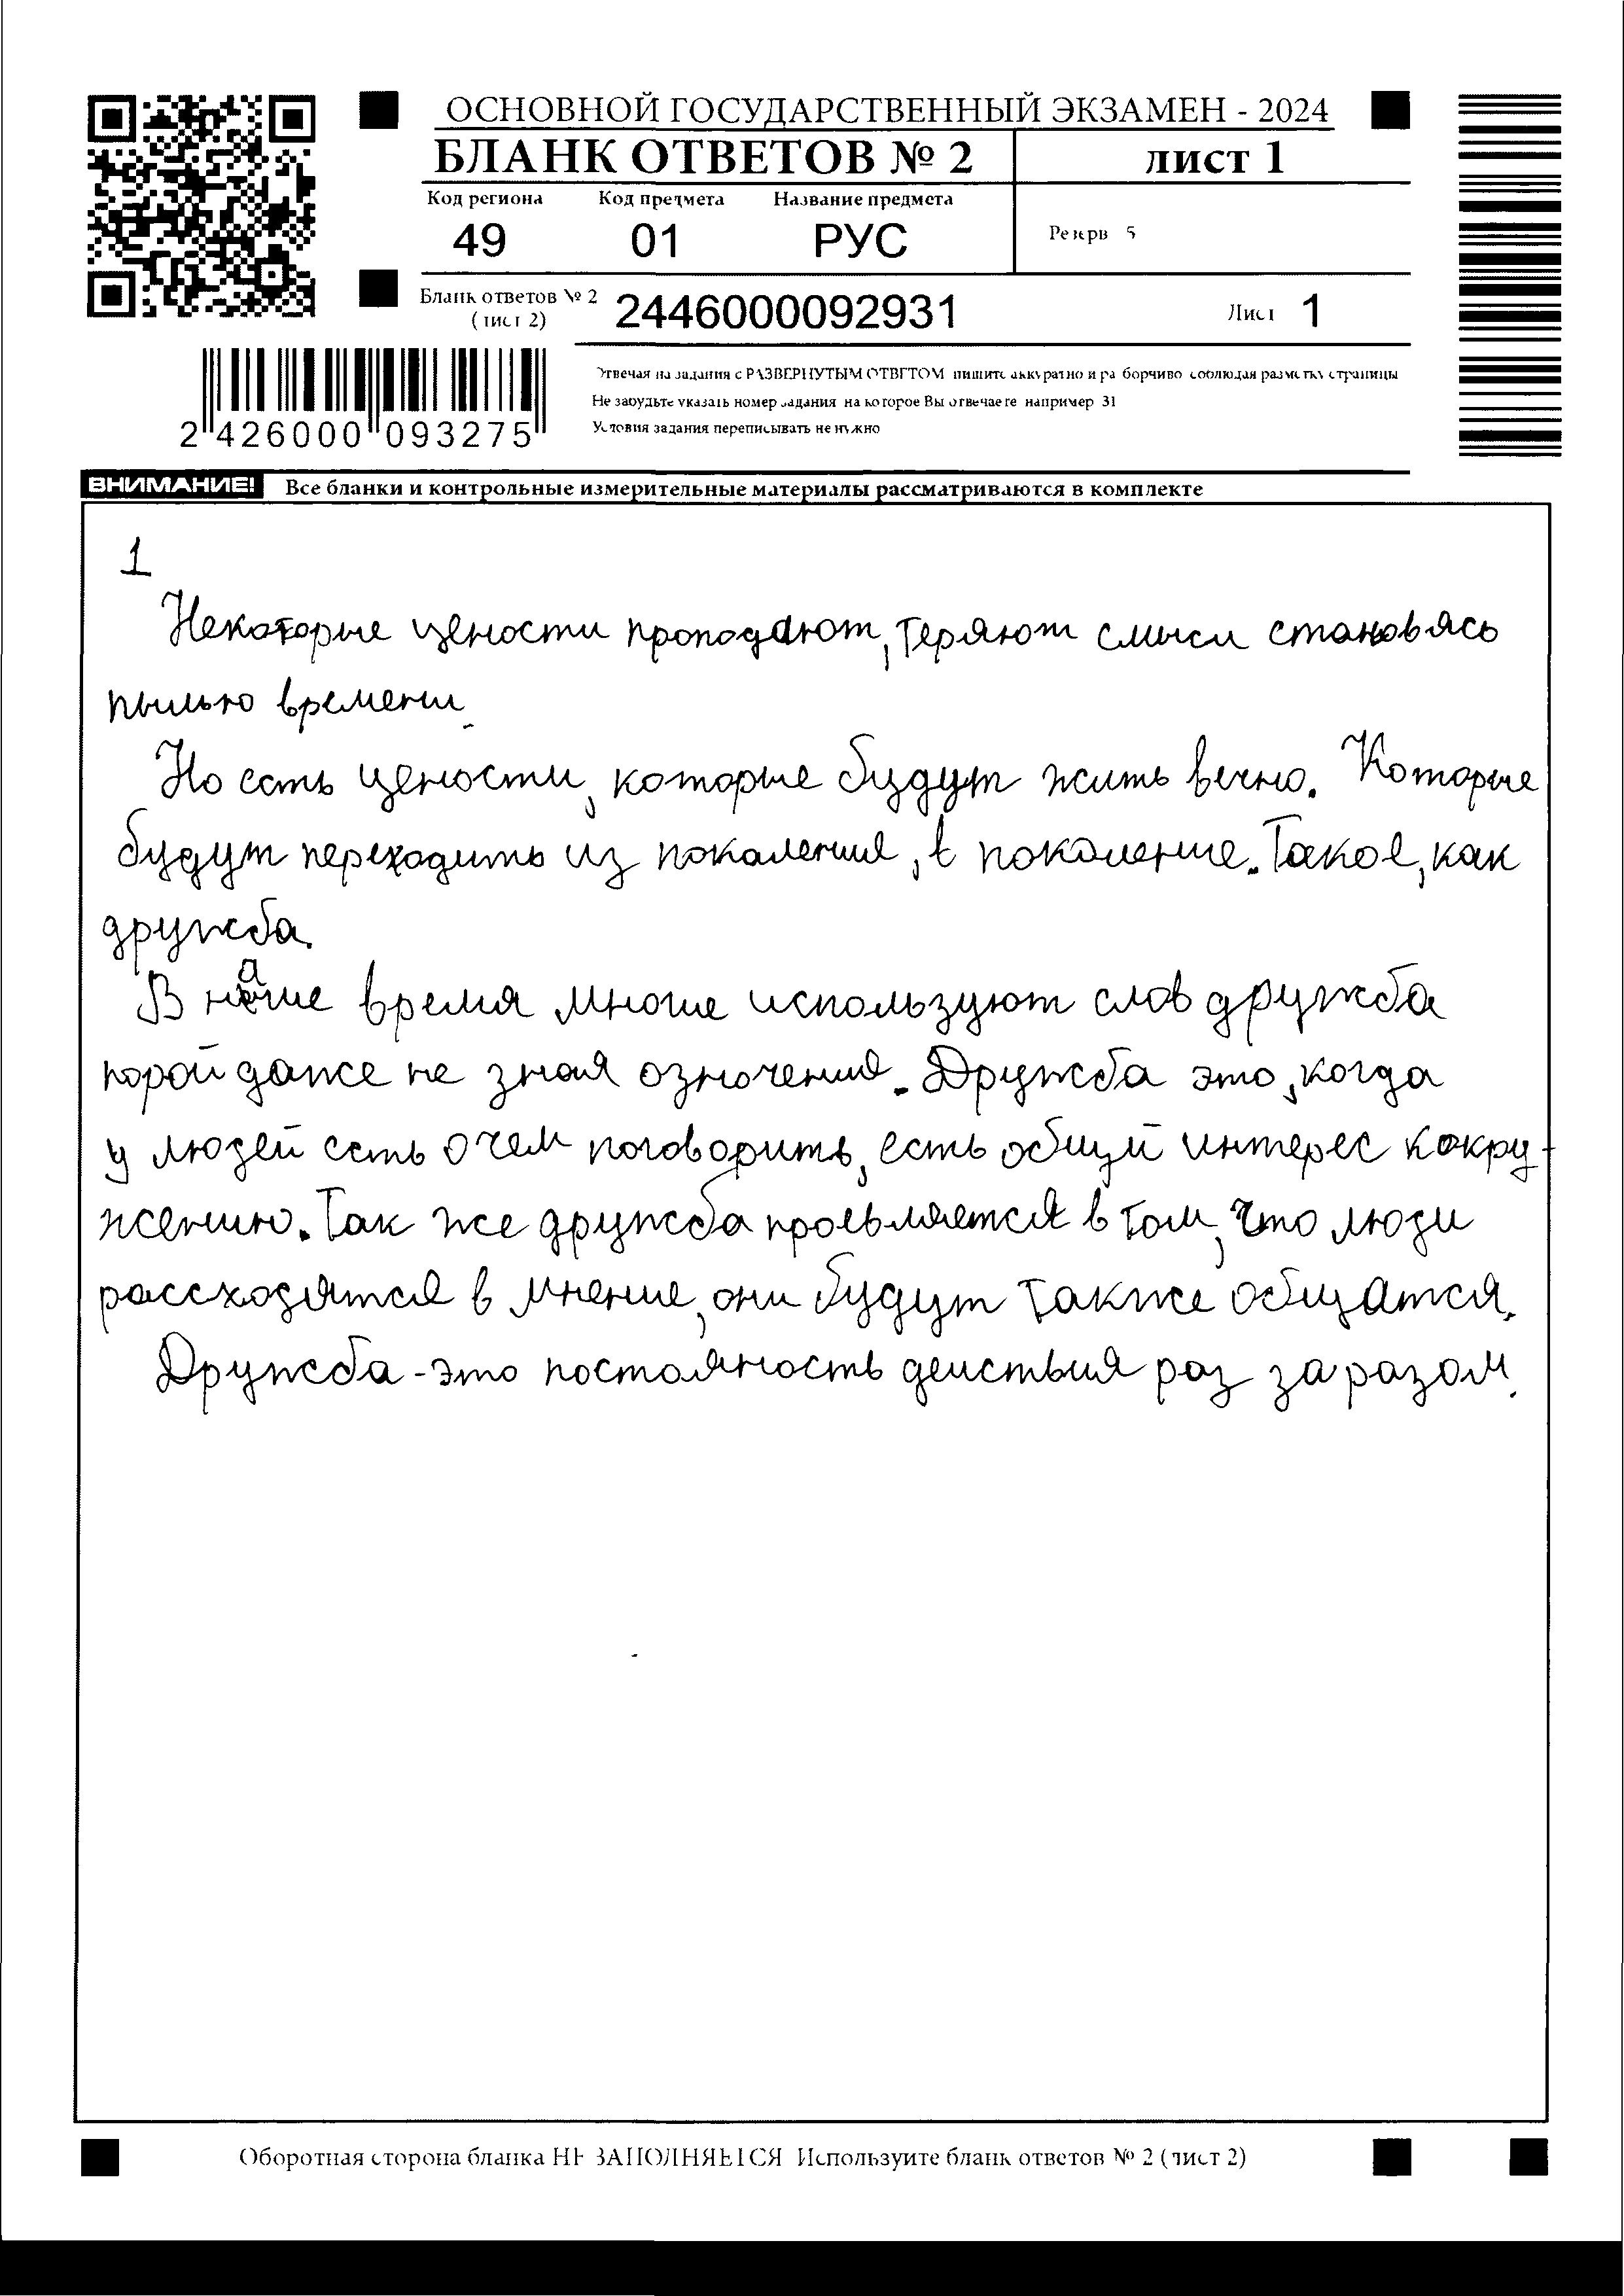 ОСНОВНОЙ ГОСУДАРСТВЕННЫЙ ЭКЗАМЕН - 2024
БЛАНК ОТВЕТОВ № 2
лист 1
Код региона Код предмета Название предмета
49 01 РУС
Резерв 5
Бланк ответов № 2
(лист 2)
2446000092931
Лист 1
2 426000 093275
Отвечая на задания с РАЗВЕРНУТЫМ ОТВЕТОМ пишите аккуратно и разборчиво соблюдая разметку страницы
Не забудьте указать номер задания на которое Вы отвечаете например 31
Условия задания переписывать не нужно
ВНИМАНИЕ! Все бланки и контрольные измерительные материалы рассматриваются в комплекте
1
Некоторые цености проподают, теряют смысл становясь
пылью времени.
Но есть цености, которые будут жить вечно. Которые
будут переходить из покаления, в поколение. Такое, как
дружба.
В наше время многие используют слов дружба
порой даже не зная озночения. Дружба это, когда
у людей есть о чем поговорить, есть общий интерес кокру-
жению. Так же дружба проевляется в том, что люди
рассходятся в мнение, они будут также общатся.
Дружба - это постояность действия раз за разом.
Оборотная сторона бланка НЕ ЗАПОЛНЯЕТСЯ Используйте бланк ответов № 2 (лист 2)